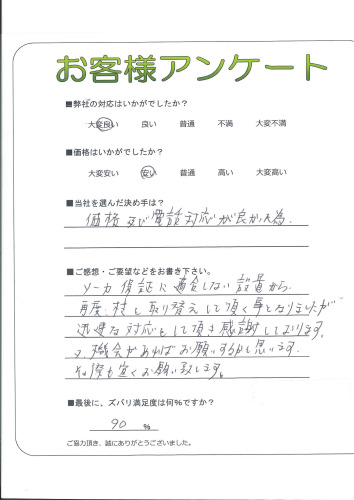 お客様アンケート
■弊社の対応はいかがでしたか?
大変良い 良い 普通 不満 大変不満
■価格はいかがでしたか?
大変安い 安い 普通 高い 大変高い
■当社を選んだ決め手は?
価格及び電話対応が良かった為.
■ご感想・ご要望などをお書き下さい。
メーカ保証に適合しない設置から
再度、 取り替えして頂く事となりましたが
迅速な対応をして頂き感謝しております。
又、機会があればお願いするかと思います.
その際も宜しくお願い致します。
■最後に、ズバリ満足度は何%ですか?
90 %
ご協力頂き、誠にありがとうございました。